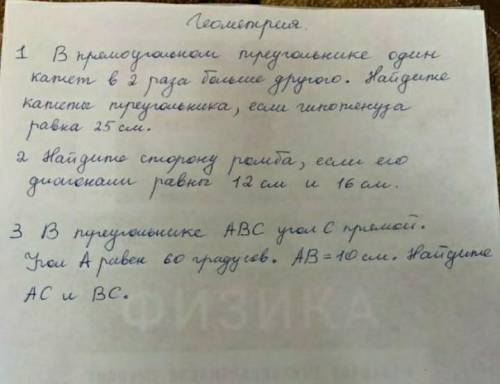 Геометрия.
1 В прямоугольном треугольнике один
катет в 2 раза больше другого. Найдите
катеты треугольника, если гипотенуза
равна 25 см.
2 Найдите сторону ромба, если его
диагонали равны 12 см и 16 см.
3 В треугольнике ABC угол C прямой.
Угол A равен 60 градусов. AB = 10 см. Найдите
AC и BC.
ФИЗИКА